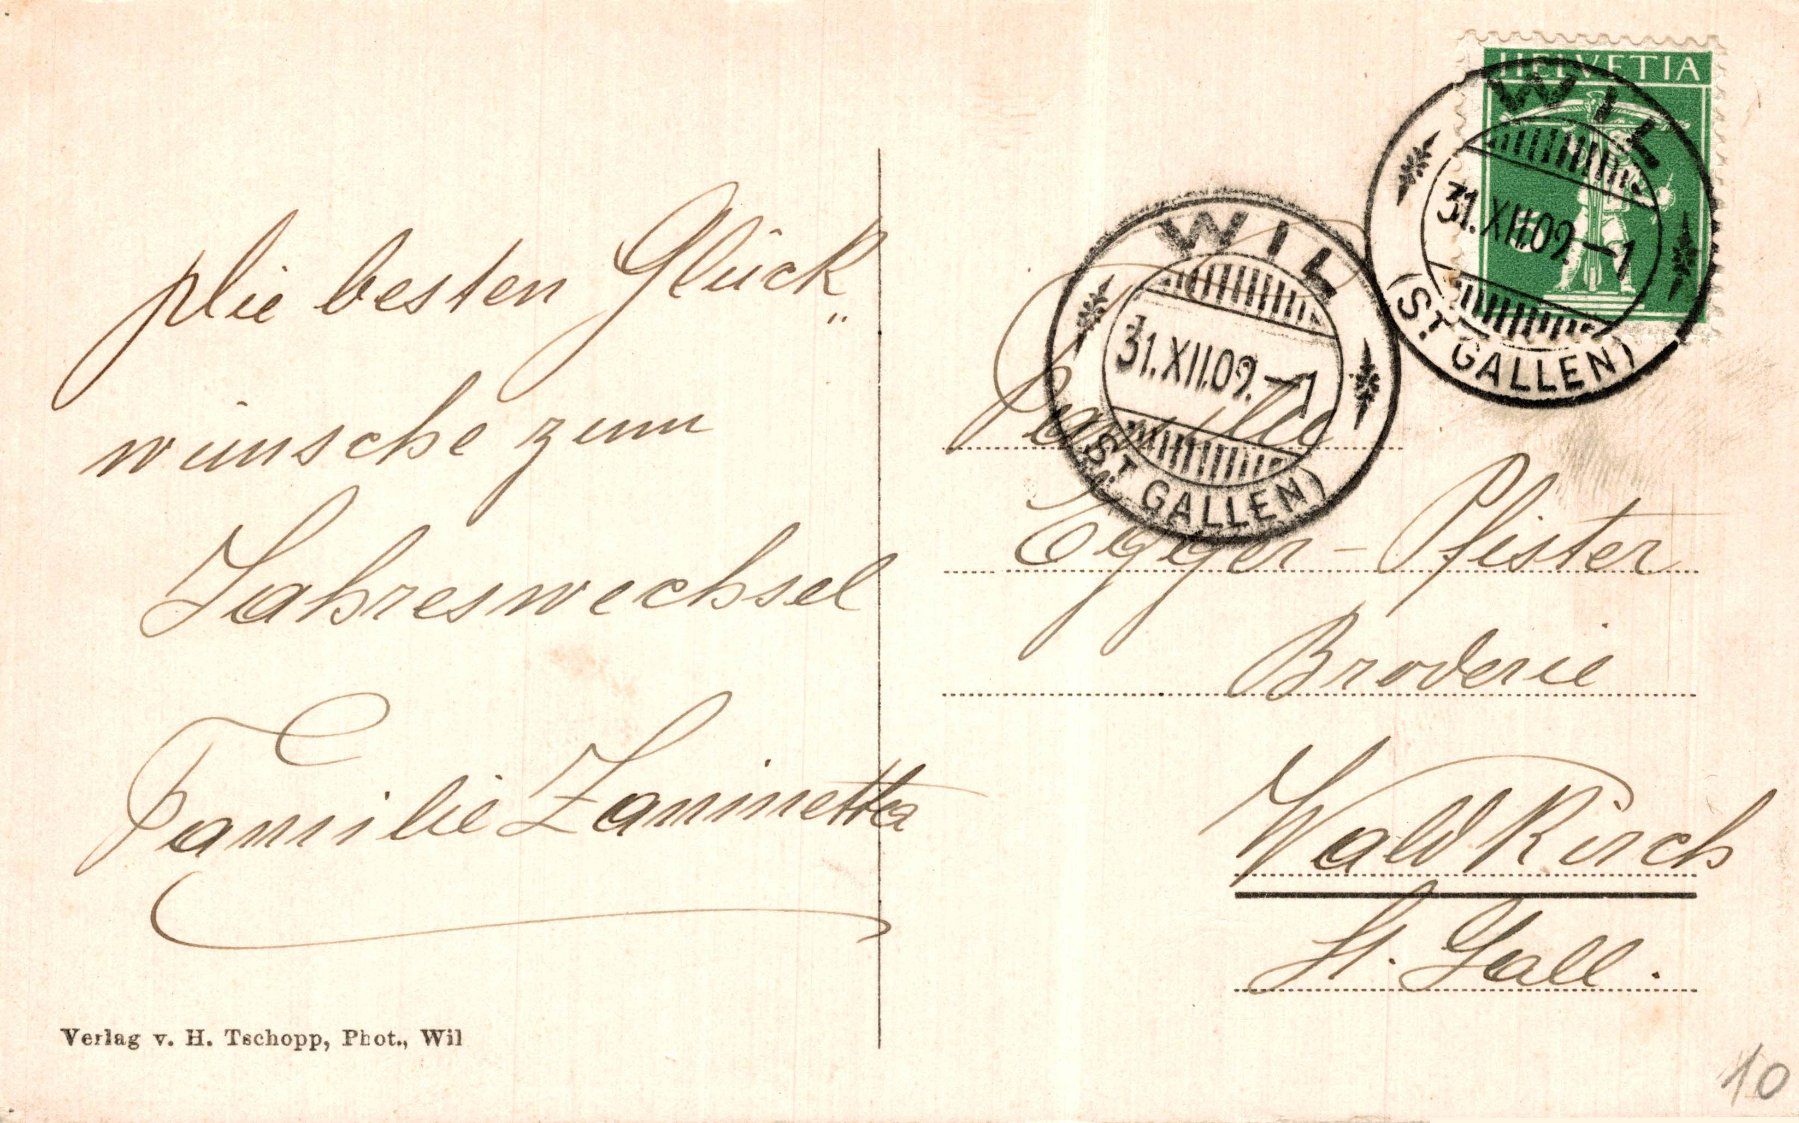 Die besten Glück„
wünsche zum
Jahreswechsel
Familie Zaninetta
Verlag v. H. Tschopp, Phot., Wil
HELVETIA
WIL
31.XII.09.–1
(ST. GALLEN)
WIL
31.XII.09.–1
(ST. GALLEN)
Familie
Egger-Pfister
Broderie
Waldkirch
St. Gall.
10